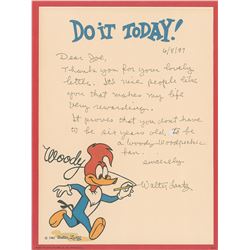 DO IT TODAY!
6/8/87
Dear Joe,
Thank you for your lovely
letter. It's nice people like
you that makes my life
very rewarding.
It proves that you don't have
to be six years old, to be
a Woody Woodpecker
fan.
Sincerely
Woody
Walter Lantz
© Walter Lantz